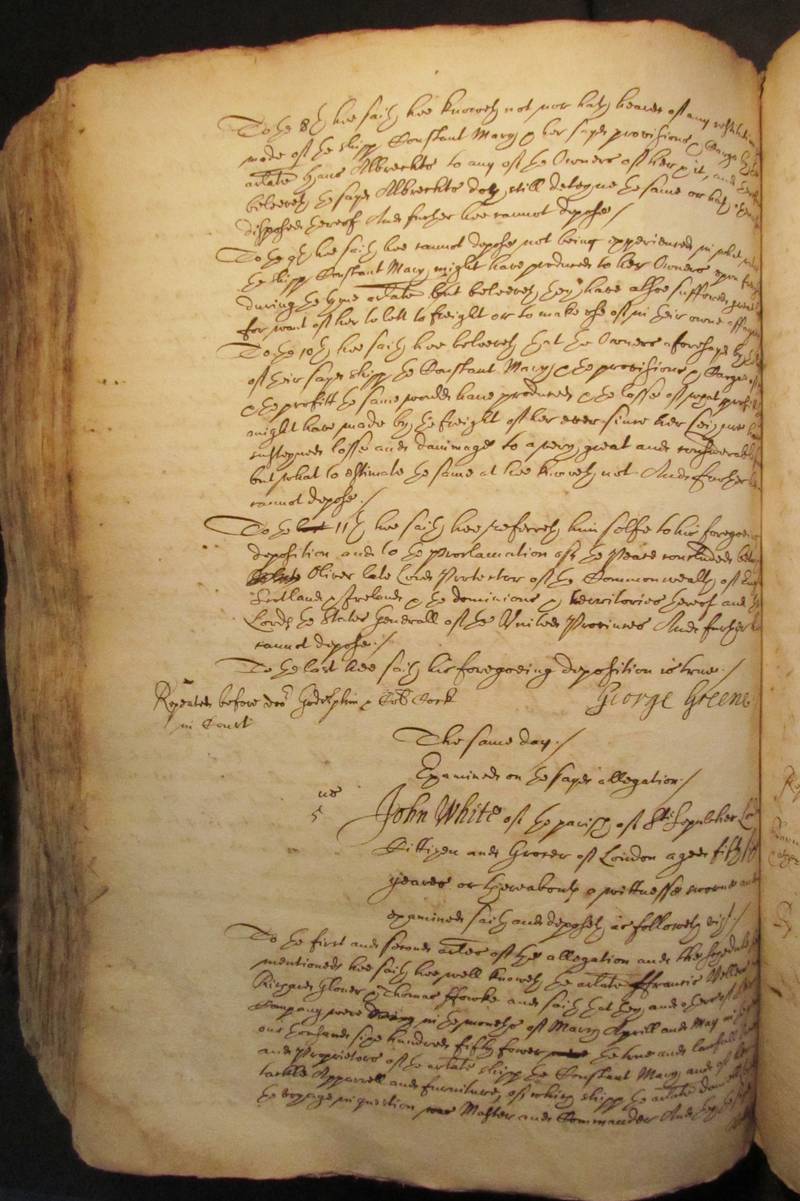 To the 8th hee saith hee knoweth not nor hath heard of any restitution
made of the shipp Constant Mary & her sayd provisions &
arlate Hans Albrechts to any of the Owners of her &
beleeveth the sayd Albrechts doth still deteyne the same or hath
disposed thereof And further hee cannot depose /
To the 9th hee saith hee cannot depose not being experienced in what
the shipp Constant Mary might have produced to her Owners
during the tyme arlate but beleeveth they have alsoe suffered
for want of her to lett to freight or to make use of in their owne
To the 10th hee saith hee beleeveth that the Owners aforesayd by
of their sayd shipp the Constant Mary & the provisions &
& the profitt the same would have produced & the losse of
might have made by the freight of her ever since her
susteyned losse and dammage to a very great and considerable
but what to estimate the same at hee knoweth not And further
cannot depose /
To the 11th hee saith hee referreth him selfe to his foregoeing
deposition and to the Proclamation of the Peace concluded
Oliver late Lord Protector of the Commonwealth of
Scotland & Ireland & the dominions & territories thereof and
Lords the States Generall of the United Provinces And further
cannot depose /
To the last hee saith his foregoeing deposition is true /
Repeated before Godolphin & Cock
in Court
George Greene
The same day /
Examined on the sayd allegation /
John White of the parish of St Sepulcher
Cittizen and Grocer of London aged fifty
yeares or thereabouts a wittnesse sworne and
examined saith and deposeth as followeth vizt /
To the first and second arles of the allegation and the schedule
mentioned hee saith hee well knoweth the arlate ffrancis
Richard Glover & Thomas ffowke and saith that they and others of
Company were in the moneths of March Aprill and May
one thousand sixe hundred fifty fower the true and lawfull
and Proprietors of the arlate shipp the Constant Mary and of
tackle Apparrell and furniture, of which shipp the arlate
the voyage in question was Master and Commander And they